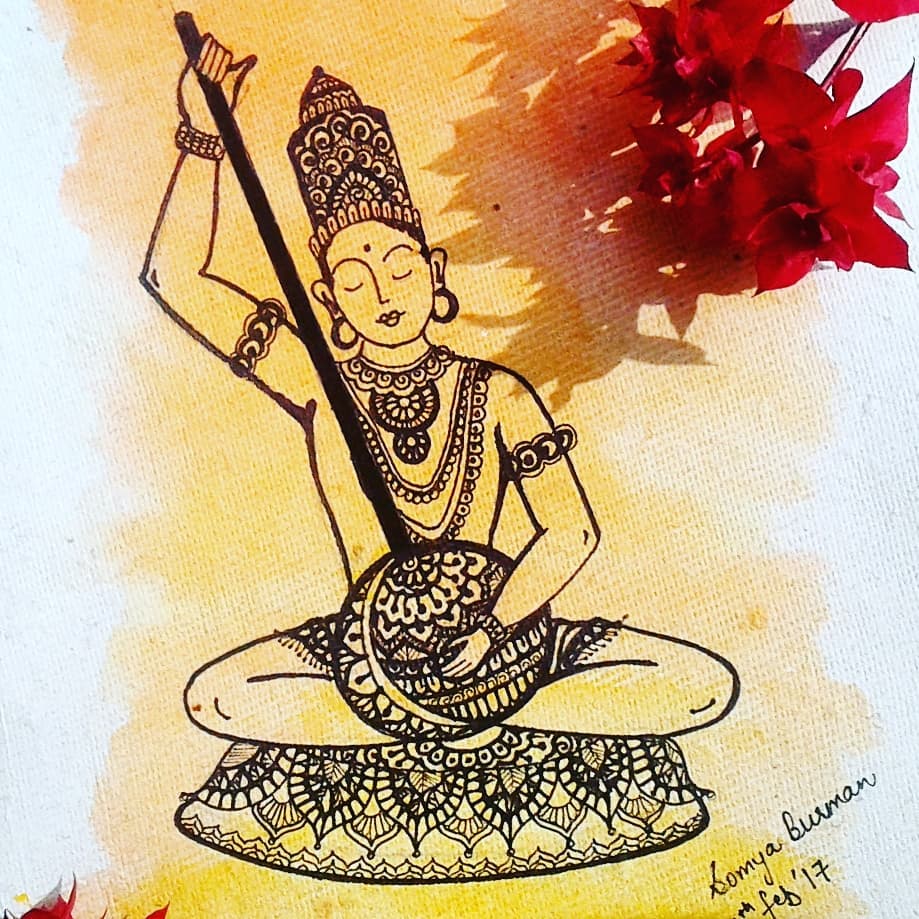 Somya Burman
feb'17